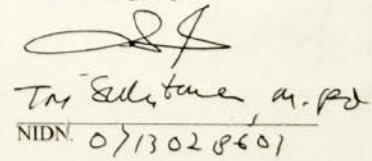 Tri Sulistanto, M.Pd
NIDN. 0713028601